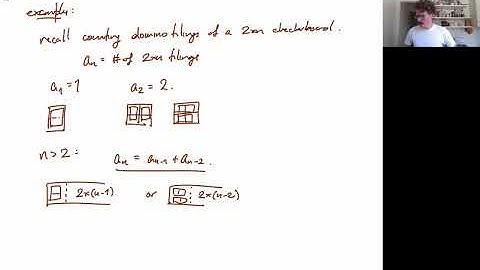 example:
recall counting domino tilings of a 2xn checkerboard.
aₙ = # of 2xn tilings
a₁ = 1 a₂ = 2.
n > 2: aₙ = aₙ₋₁ + aₙ₋₂.
2x(n-1) or 2x(n-2)